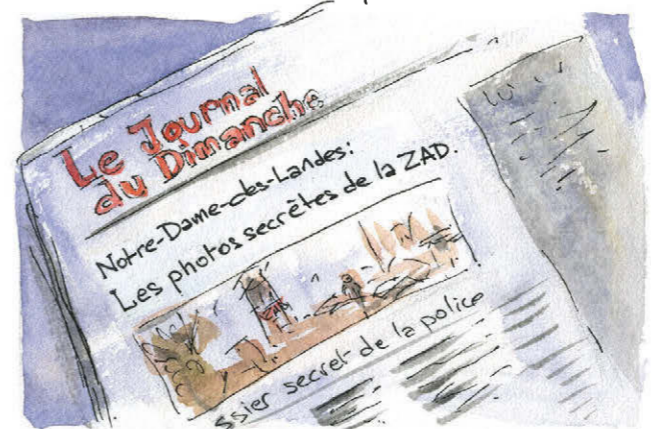 Le Journal
du Dimanche
Notre-Dame-des-Landes:
Les photos secrètes de la ZAD.
ssier secret de la police